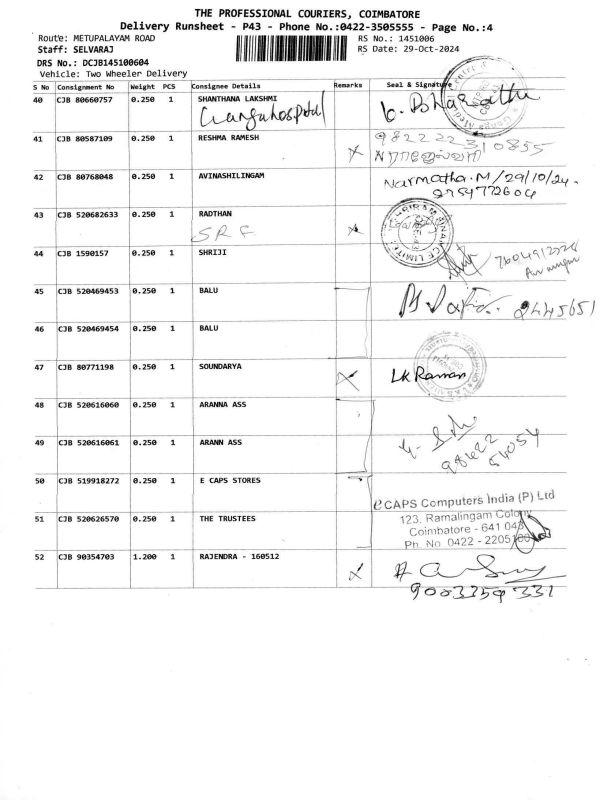 THE PROFESSIONAL COURIERS, COIMBATORE
Delivery Runsheet - P43 - Phone No.:0422-3505555 - Page No.:4
Route: METUPALAYAM ROAD RS No.: 1451006
Staff: SELVARAJ RS Date: 29-Oct-2024
DRS No.: DCJB145100604
Vehicle: Two Wheeler Delivery
S No Consignment No Weight PCS Consignee Details Remarks Seal & Signature
40 CJB 80660757 0.250 1 SHANTHANA LAKSHMI
Ganga hospital
41 CJB 80587109 0.250 1 RESHMA RAMESH
42 CJB 80768048 0.250 1 AVINASHILINGAM Narmatha.M/29/10/24.
9754772604
43 CJB 520682633 0.250 1 RADTHAN
SRF
44 CJB 1590157 0.250 1 SHRIJI
45 CJB 520469453 0.250 1 BALU
46 CJB 520469454 0.250 1 BALU
47 CJB 80771198 0.250 1 SOUNDARYA LK Raman
48 CJB 520616060 0.250 1 ARANNA ASS
49 CJB 520616061 0.250 1 ARANN ASS 98422
54054
50 CJB 519918272 0.250 1 E CAPS STORES
eCAPS Computers India (P) Ltd
51 CJB 520626570 0.250 1 THE TRUSTEES 123, Ramalingam Colony
Coimbatore - 641 043
Ph. No. 0422 - 2205
52 CJB 90354703 1.200 1 RAJENDRA - 160512
9003759331